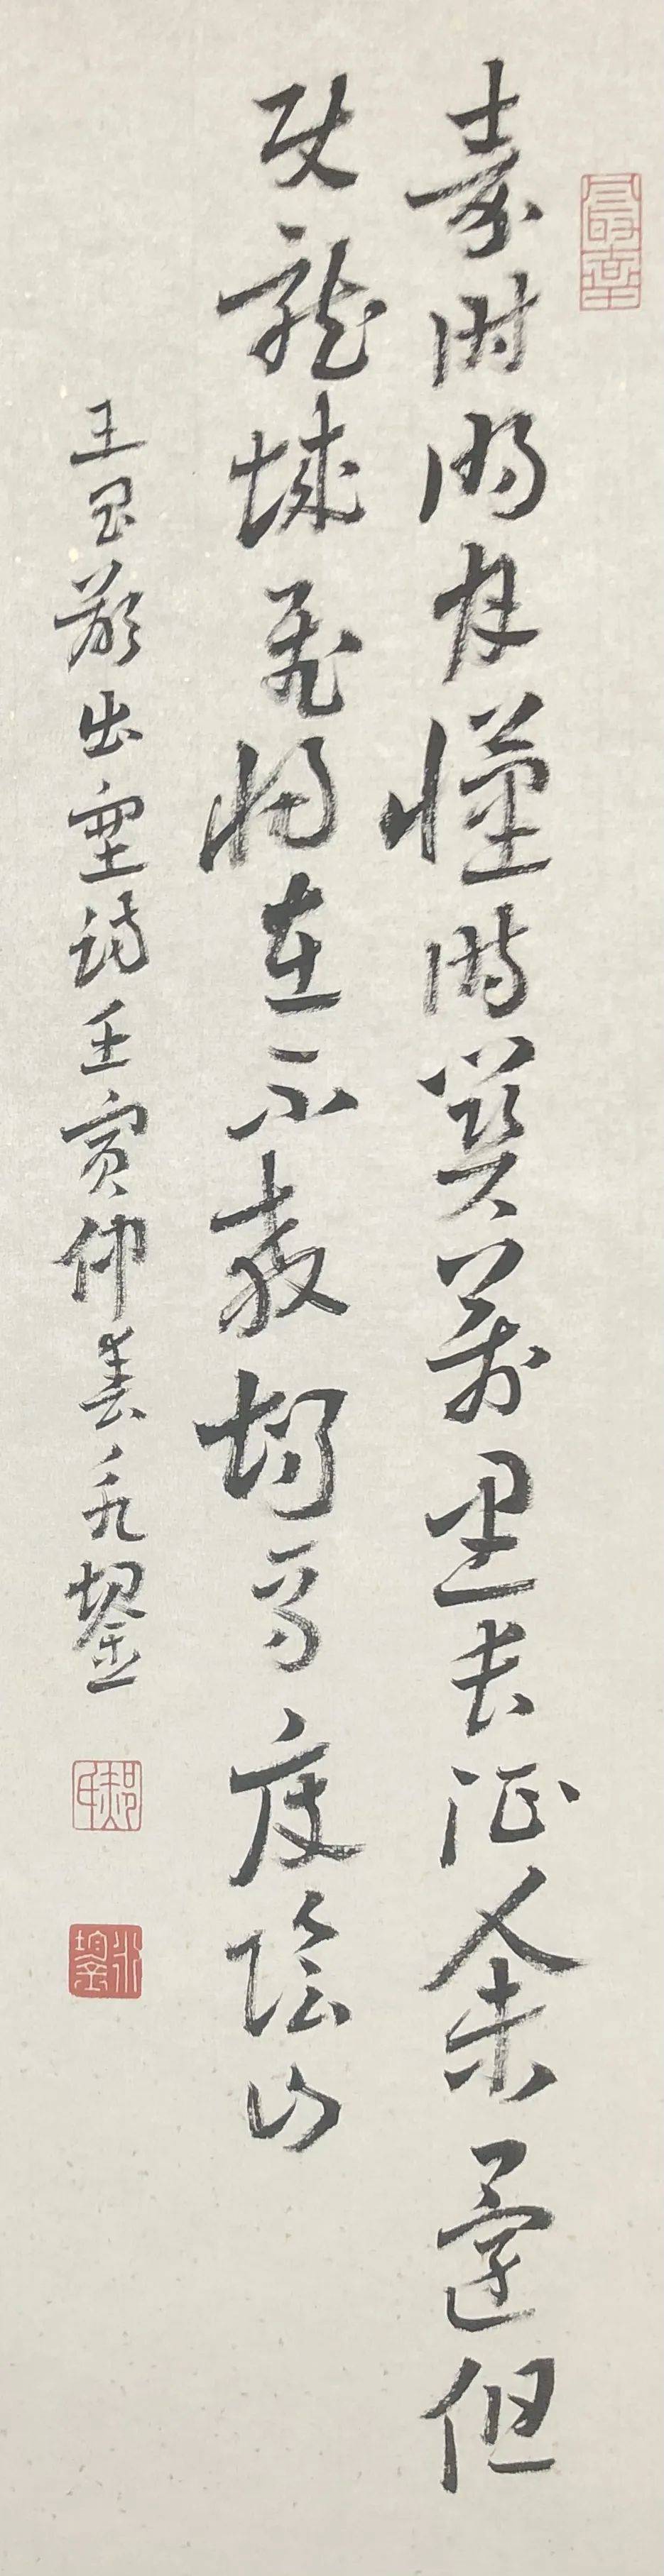 秦時明月漢時關萬里長征人未還但
使龍城飛將在不教胡馬度陰山
王昌齡出塞詩壬寅仲春永鋆